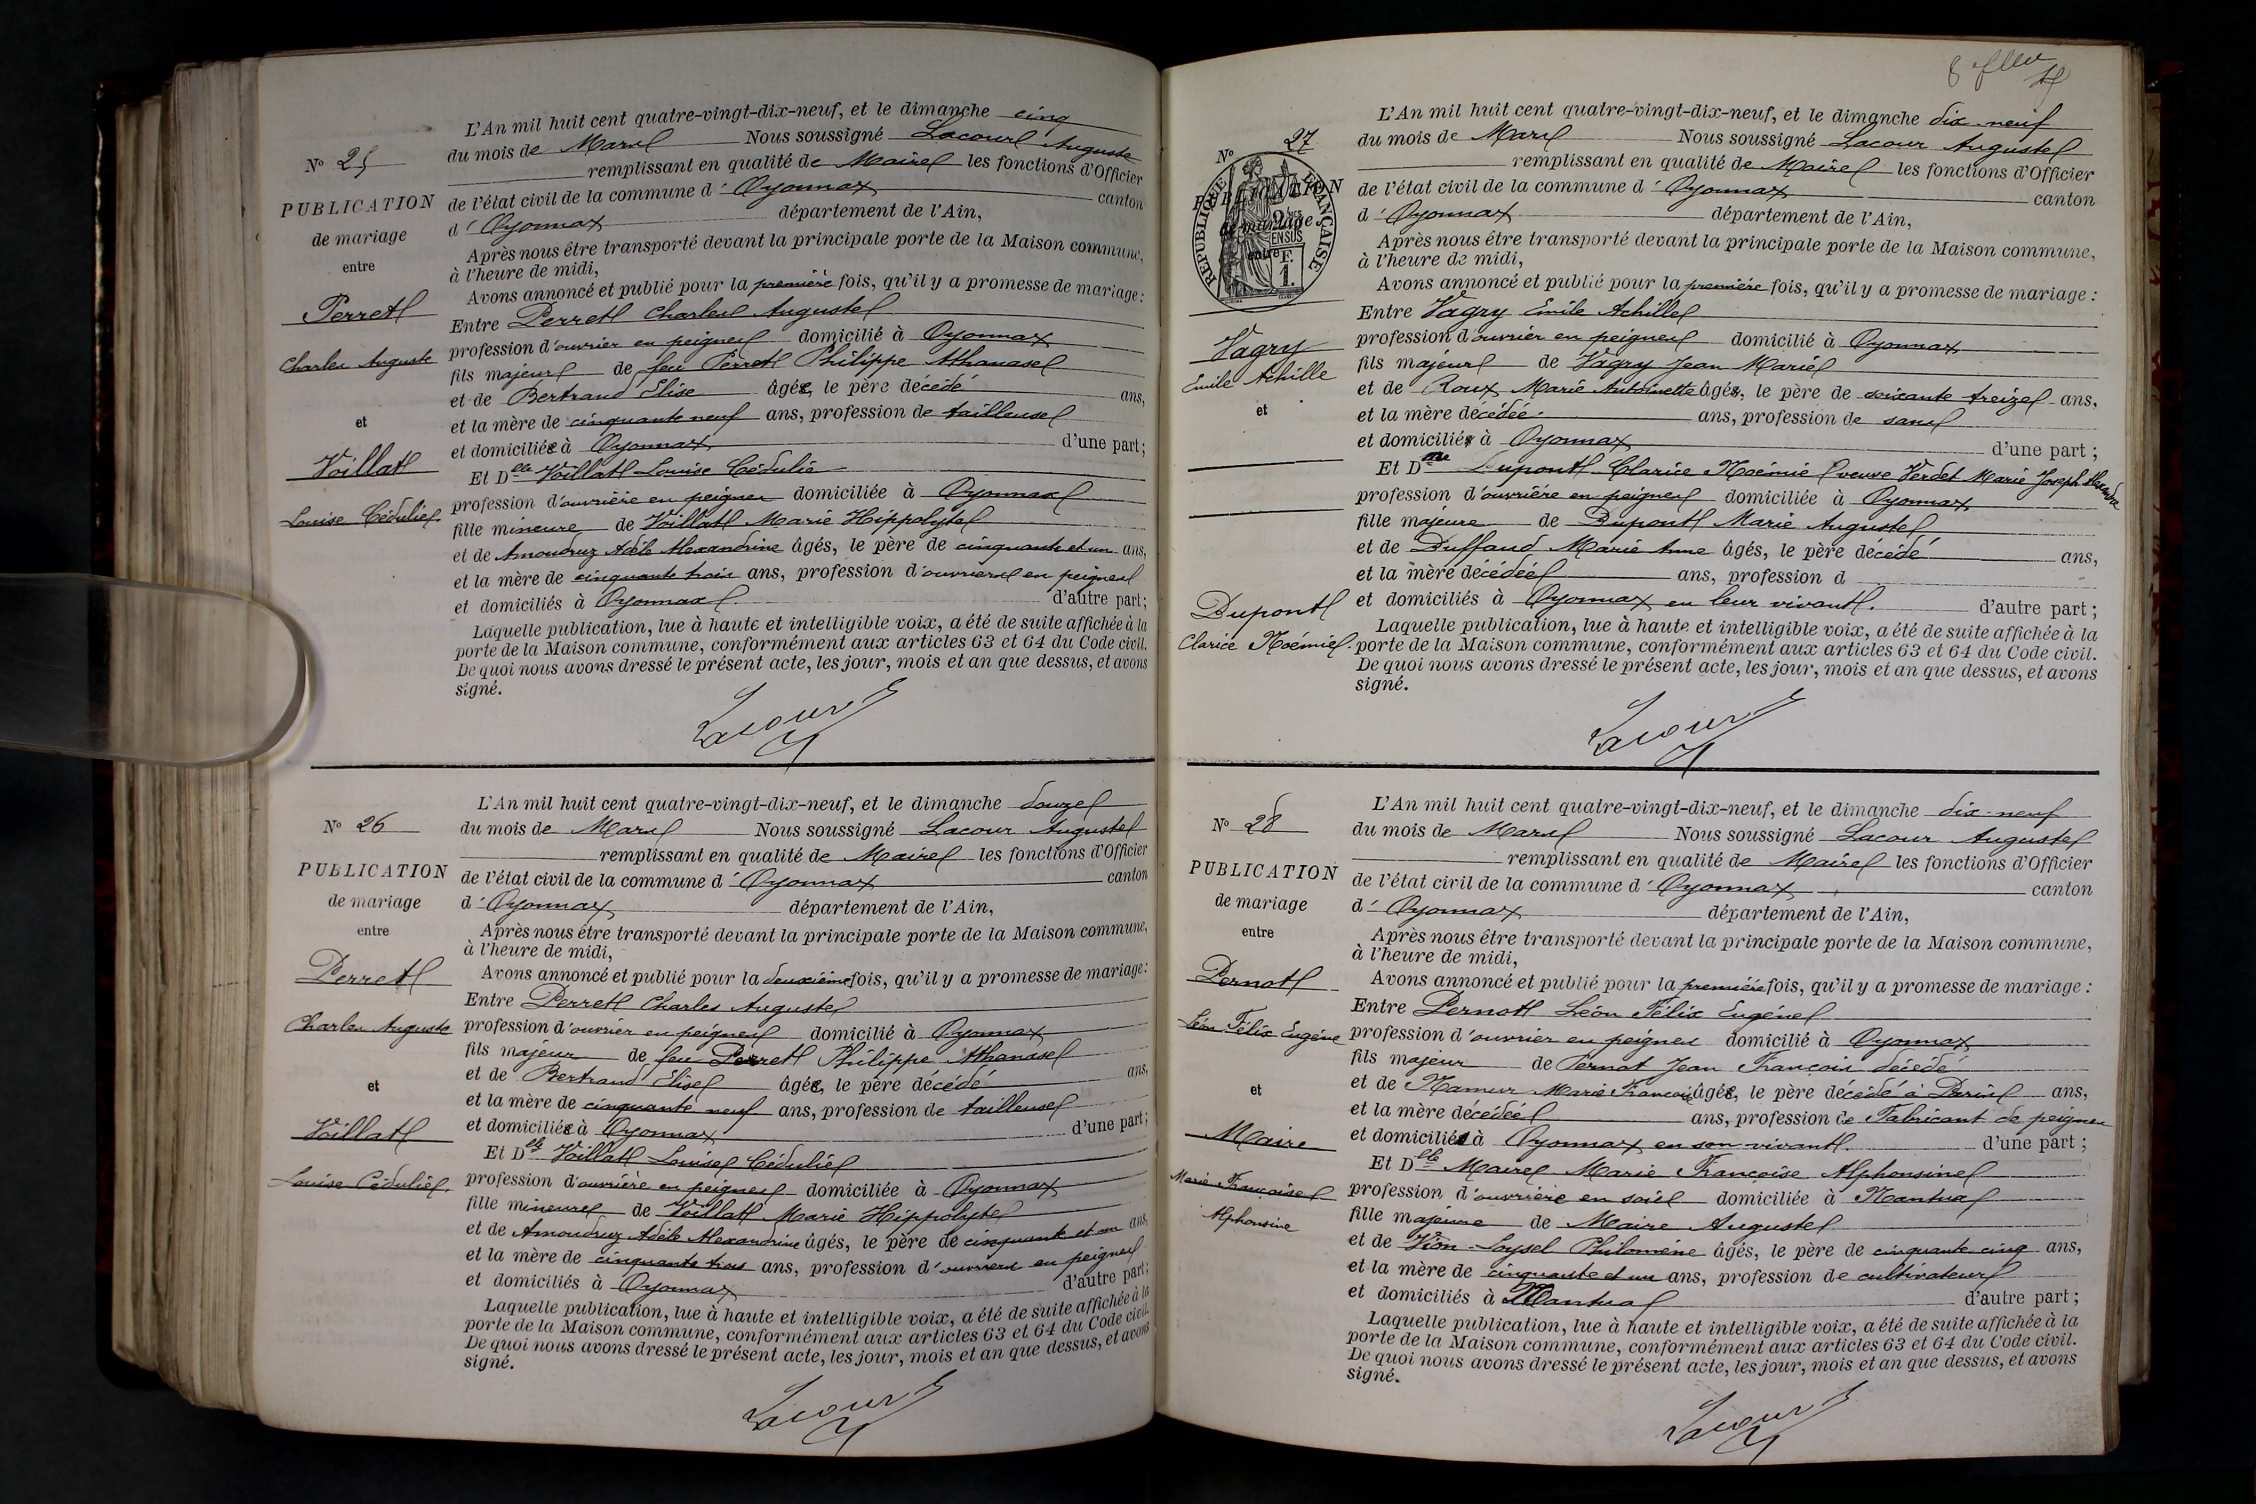 N° 25
PUBLICATION
de mariage
entre
Perret
Charles Auguste
et
Voillat
Louise Cédulie
L'An mil huit cent quatre-vingt-dix-neuf, et le dimanche cinq
du mois de Mars Nous soussigné Lacour Auguste
remplissant en qualité de Maire les fonctions d'Officier
de l'état civil de la commune d' Oyonnax canton
d' Oyonnax département de l'Ain,
Après nous être transporté devant la principale porte de la Maison commune,
à l'heure de midi,
Avons annoncé et publié pour la première fois, qu'il y a promesse de mariage :
Entre Perret Charles Auguste
profession d'ouvrier en peignes domicilié à Oyonnax
fils majeur de feu Perret Philippe Athanase
et de Bertrand Elise âgés, le père décédé ans,
et la mère de cinquante neuf ans, profession de tailleuse
et domiciliés à Oyonnax d'une part ;
Et Delle Voillat Louise Cédulie
profession d'ouvrière en peignes domiciliée à Oyonnax
fille mineure de Voillat Marie Hippolyte
et de Amoudruz Adèle Alexandrine âgés, le père de cinquante et un ans,
et la mère de cinquante trois ans, profession d'ouvriers en peignes
et domiciliés à Oyonnax d'autre part ;
Laquelle publication, lue à haute et intelligible voix, a été de suite affichée à la
porte de la Maison commune, conformément aux articles 63 et 64 du Code civil.
De quoi nous avons dressé le présent acte, les jour, mois et an que dessus, et avons
signé.
Lacour
N° 26
PUBLICATION
de mariage
entre
Perret
Charles Auguste
et
Voillat
Louise Cédulie
L'An mil huit cent quatre-vingt-dix-neuf, et le dimanche douze
du mois de Mars Nous soussigné Lacour Auguste
remplissant en qualité de Maire les fonctions d'Officier
de l'état civil de la commune d' Oyonnax canton
d' Oyonnax département de l'Ain,
Après nous être transporté devant la principale porte de la Maison commune,
à l'heure de midi,
Avons annoncé et publié pour la deuxième fois, qu'il y a promesse de mariage :
Entre Perret Charles Auguste
profession d'ouvrier en peignes domicilié à Oyonnax
fils majeur de feu Perret Philippe Athanase
et de Bertrand Elise âgés, le père décédé ans,
et la mère de cinquante neuf ans, profession de tailleuse
et domiciliés à Oyonnax d'une part ;
Et Delle Voillat Louise Cédulie
profession d'ouvrière en peignes domiciliée à Oyonnax
fille mineure de Voillat Marie Hippolyte
et de Amoudruz Adèle Alexandrine âgés, le père de cinquante et un ans,
et la mère de cinquante trois ans, profession d'ouvriers en peignes
et domiciliés à Oyonnax d'autre part ;
Laquelle publication, lue à haute et intelligible voix, a été de suite affichée à la
porte de la Maison commune, conformément aux articles 63 et 64 du Code civil.
De quoi nous avons dressé le présent acte, les jour, mois et an que dessus, et avons
signé.
Lacour
N° 27
PUBLICATION
de mariage
entre
RÉPUBLIQUE FRANÇAISE
EN SUS
F.
1.
Vagry
Emile Achille
et
Dupont
Clarice Noémie
L'An mil huit cent quatre-vingt-dix-neuf, et le dimanche dix-neuf
du mois de Mars Nous soussigné Lacour Auguste
remplissant en qualité de Maire les fonctions d'Officier
de l'état civil de la commune d' Oyonnax canton
d' Oyonnax département de l'Ain,
Après nous être transporté devant la principale porte de la Maison commune,
à l'heure de midi,
Avons annoncé et publié pour la première fois, qu'il y a promesse de mariage :
Entre Vagry Emile Achille
profession d'ouvrier en peignes domicilié à Oyonnax
fils majeur de Vagry Jean Marie
et de Roux Marie Antoinette âgés, le père de soixante treize ans,
et la mère décédée ans, profession de sans
et domiciliés à Oyonnax d'une part ;
Et Dme Dupont Clarice Noémie veuve Verdet Marie Joseph Alexandre
profession d'ouvrière en peignes domiciliée à Oyonnax
fille majeure de Dupont Marie Auguste
et de Duffaud Marie Anne âgés, le père décédé ans,
et la mère décédée ans, profession d
et domiciliés à Oyonnax en leur vivant. d'autre part ;
Laquelle publication, lue à haute et intelligible voix, a été de suite affichée à la
porte de la Maison commune, conformément aux articles 63 et 64 du Code civil.
De quoi nous avons dressé le présent acte, les jour, mois et an que dessus, et avons
signé.
Lacour
N° 28
PUBLICATION
de mariage
entre
Pernot
Léon Félix Eugène
et
Maire
Marie Françoise
Alphonsine
L'An mil huit cent quatre-vingt-dix-neuf, et le dimanche dix-neuf
du mois de Mars Nous soussigné Lacour Auguste
remplissant en qualité de Maire les fonctions d'Officier
de l'état civil de la commune d' Oyonnax canton
d' Oyonnax département de l'Ain,
Après nous être transporté devant la principale porte de la Maison commune,
à l'heure de midi,
Avons annoncé et publié pour la première fois, qu'il y a promesse de mariage :
Entre Pernot Léon Félix Eugène
profession d'ouvrier en peignes domicilié à Oyonnax
fils majeur de Pernot Jean François décédé
et de Mamur Marie Françoise âgés, le père décédé à Paris ans,
et la mère décédée ans, profession de Fabricant de peignes
et domiciliés à Oyonnax en son vivant. d'une part ;
Et Delle Maire Marie Françoise Alphonsine
profession d'ouvrière en soie domiciliée à Nantua
fille majeure de Maire Auguste
et de Vion-Loysel Philomène âgés, le père de cinquante cinq ans,
et la mère de cinquante et un ans, profession de cultivateurs
et domiciliés à Nantua d'autre part ;
Laquelle publication, lue à haute et intelligible voix, a été de suite affichée à la
porte de la Maison commune, conformément aux articles 63 et 64 du Code civil.
De quoi nous avons dressé le présent acte, les jour, mois et an que dessus, et avons
signé.
Lacour